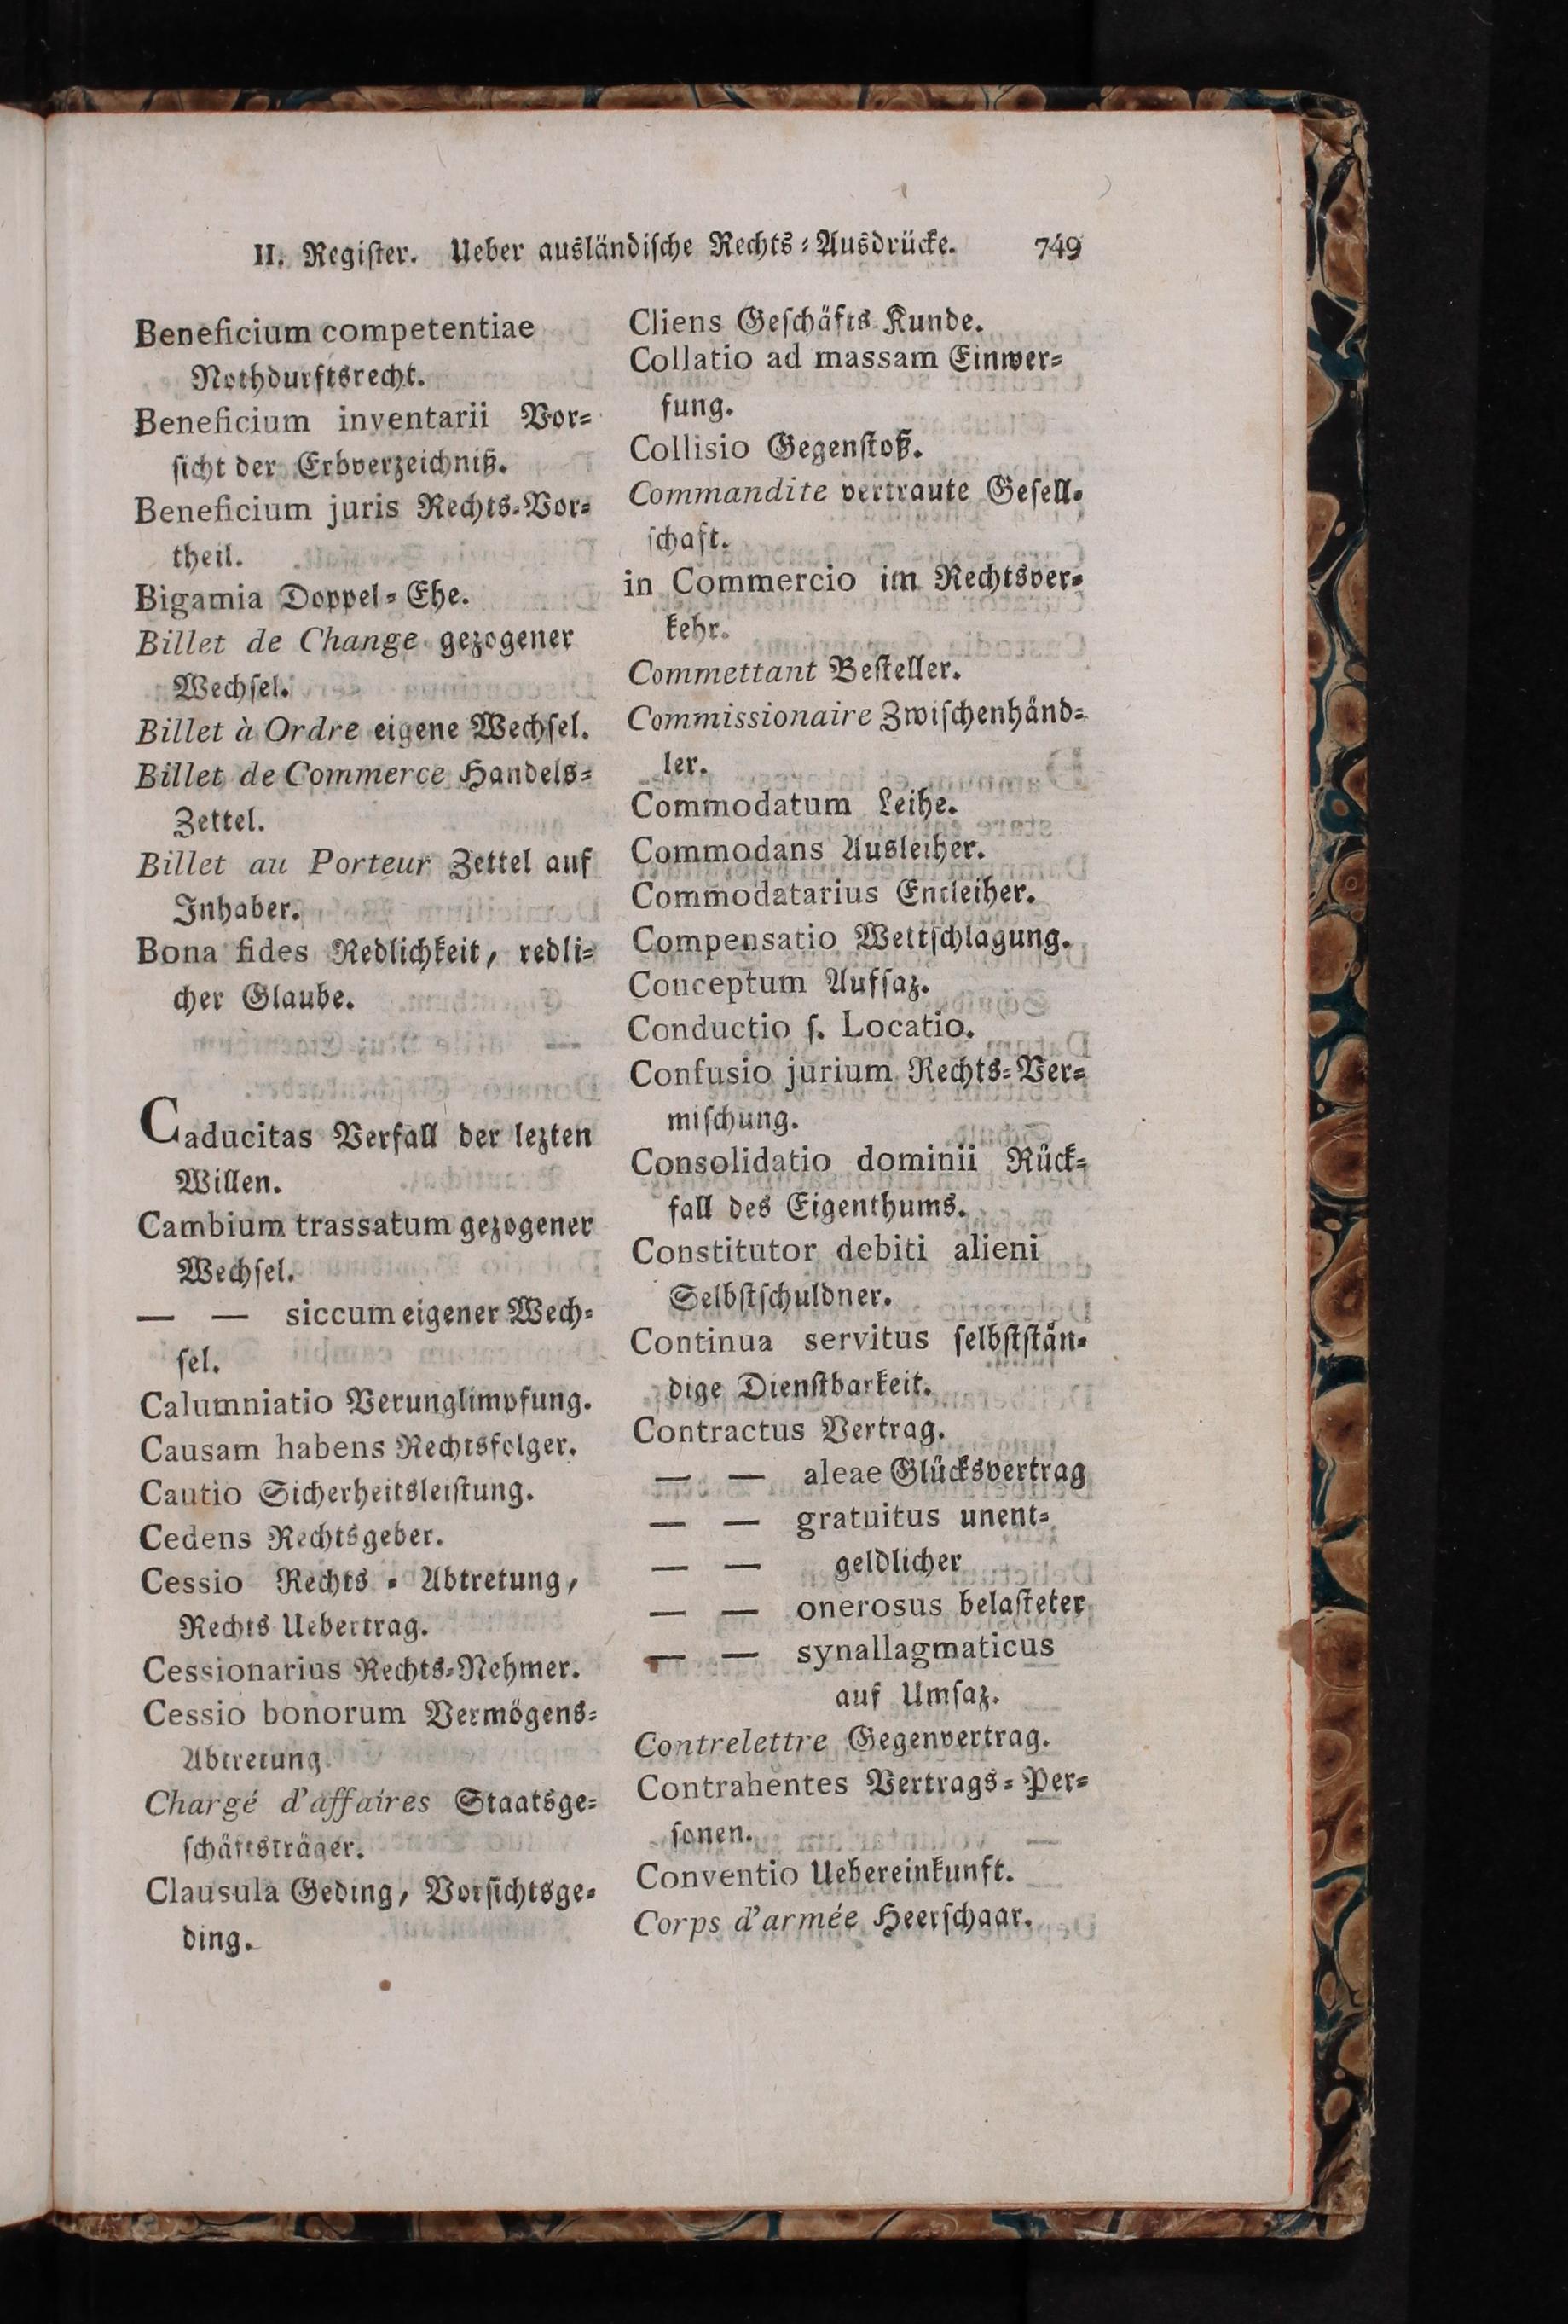 II. Register. Ueber ausländische Rechts-Ausdrücke. 749
Beneficium competentiae
Nothdurftsrecht.
Beneficium inventarii Vor-
sicht der Erbverzeichniß.
Beneficium juris Rechts-Vor-
theil.
Bigamia Doppel-Ehe.
Billet de Change gezogener
Wechsel.
Billet à Ordre eigene Wechsel.
Billet de Commerce Handels-
Zettel.
Billet au Porteur Zettel auf
Inhaber.
Bona fides Redlichkeit, redli-
cher Glaube.
Caducitas Verfall der lezten
Willen.
Cambium trassatum gezogener
Wechsel.
— — siccum eigener Wech-
sel.
Calumniatio Verunglimpfung.
Causam habens Rechtsfolger.
Cautio Sicherheitsleistung.
Cedens Rechtsgeber.
Cessio Rechts-Abtretung,
Rechts Uebertrag.
Cessionarius Rechts-Nehmer.
Cessio bonorum Vermögens-
Abtretung.
Chargé d'affaires Staatsge-
schäftsträger.
Clausula Geding, Vorsichtsge-
ding.
Cliens Geschäfts-Kunde.
Collatio ad massam Einwer-
fung.
Collisio Gegenstoß.
Commandite vertraute Gesell-
schaft.
in Commercio im Rechtsver-
kehr.
Commettant Besteller.
Commissionaire Zwischenhänd-
ler.
Commodatum Leihe.
Commodans Ausleiher.
Commodatarius Entleiher.
Compensatio Wettschlagung.
Conceptum Aufsaz.
Conductio s. Locatio.
Confusio jurium Rechts-Ver-
mischung.
Consolidatio dominii Rück-
fall des Eigenthums.
Constitutor debiti alieni
Selbstschuldner.
Continua servitus selbststän-
dige Dienstbarkeit.
Contractus Vertrag.
— — aleae Glücksvertrag
— — gratuitus unent-
— — geldlicher
— — onerosus belasteter
— — synallagmaticus
auf Umsaz.
Contrelettre Gegenvertrag.
Contrahentes Vertrags-Per-
sonen.
Conventio Uebereinkunft.
Corps d'armée Heerschaar.